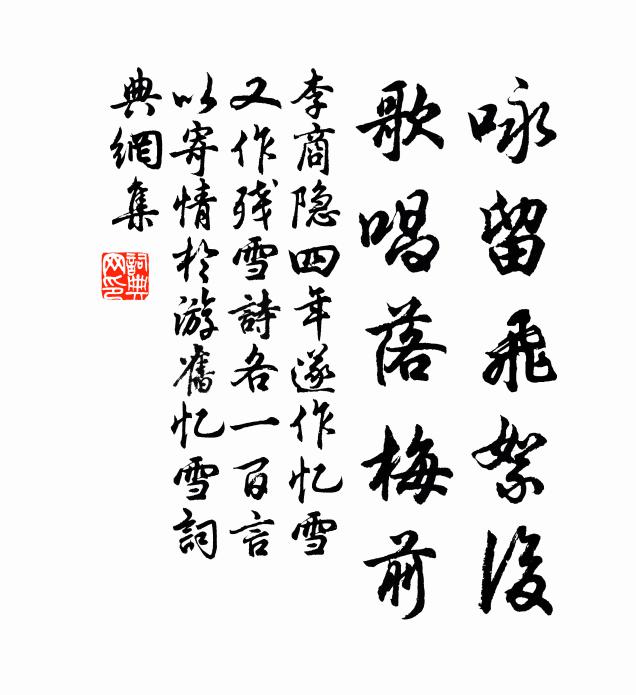 咏留飛絮後
歌唱落梅前
李商隐四年遂作忆雪
又作残雪詩各一百言
以寄情於游舊忆雪詞
典網集
詞典
网印